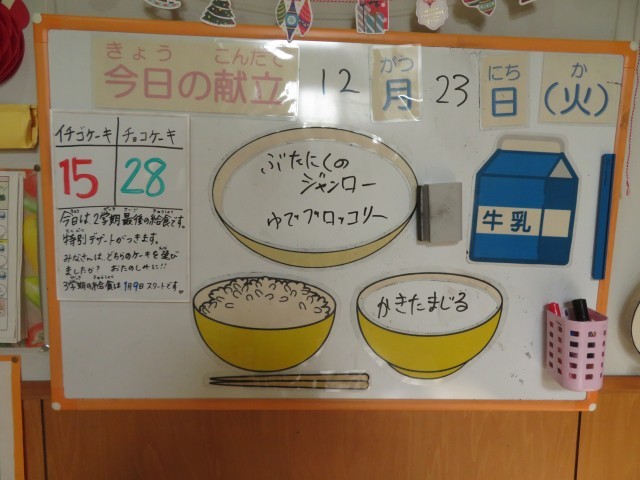 きょう こんだて
今日の献立
12
がつ
月
23
にち
日
か
(火)
イチゴケーキ チョコケーキ
15 28
今日は2学期最後の給食です。
特別デザートがつきます。
みなさんは、どちらのケーキを選び
ましたか? おたのしみに!!
3学期の給食は1月9日スタートです。
ぶたにくの
ジャンロー
ゆでブロッコリー
牛乳
かきたまじる